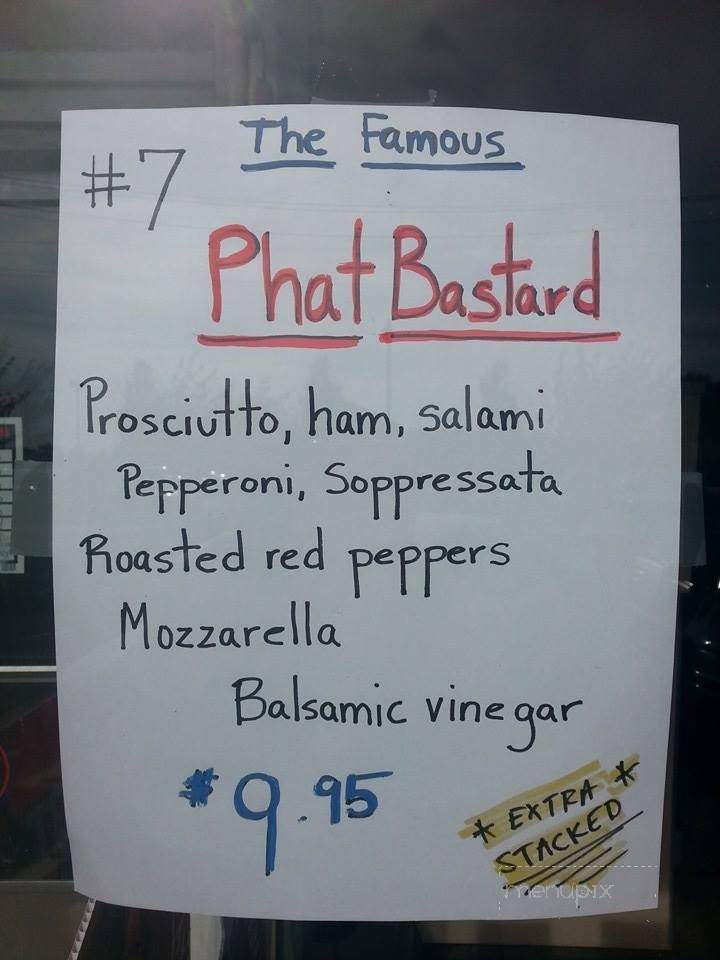 The Famous
#7
Phat Bastard
Prosciutto, ham, salami
Pepperoni, Soppressata
Roasted red peppers
Mozzarella
Balsamic vinegar
$9.95
* EXTRA *
STACKED
menupix